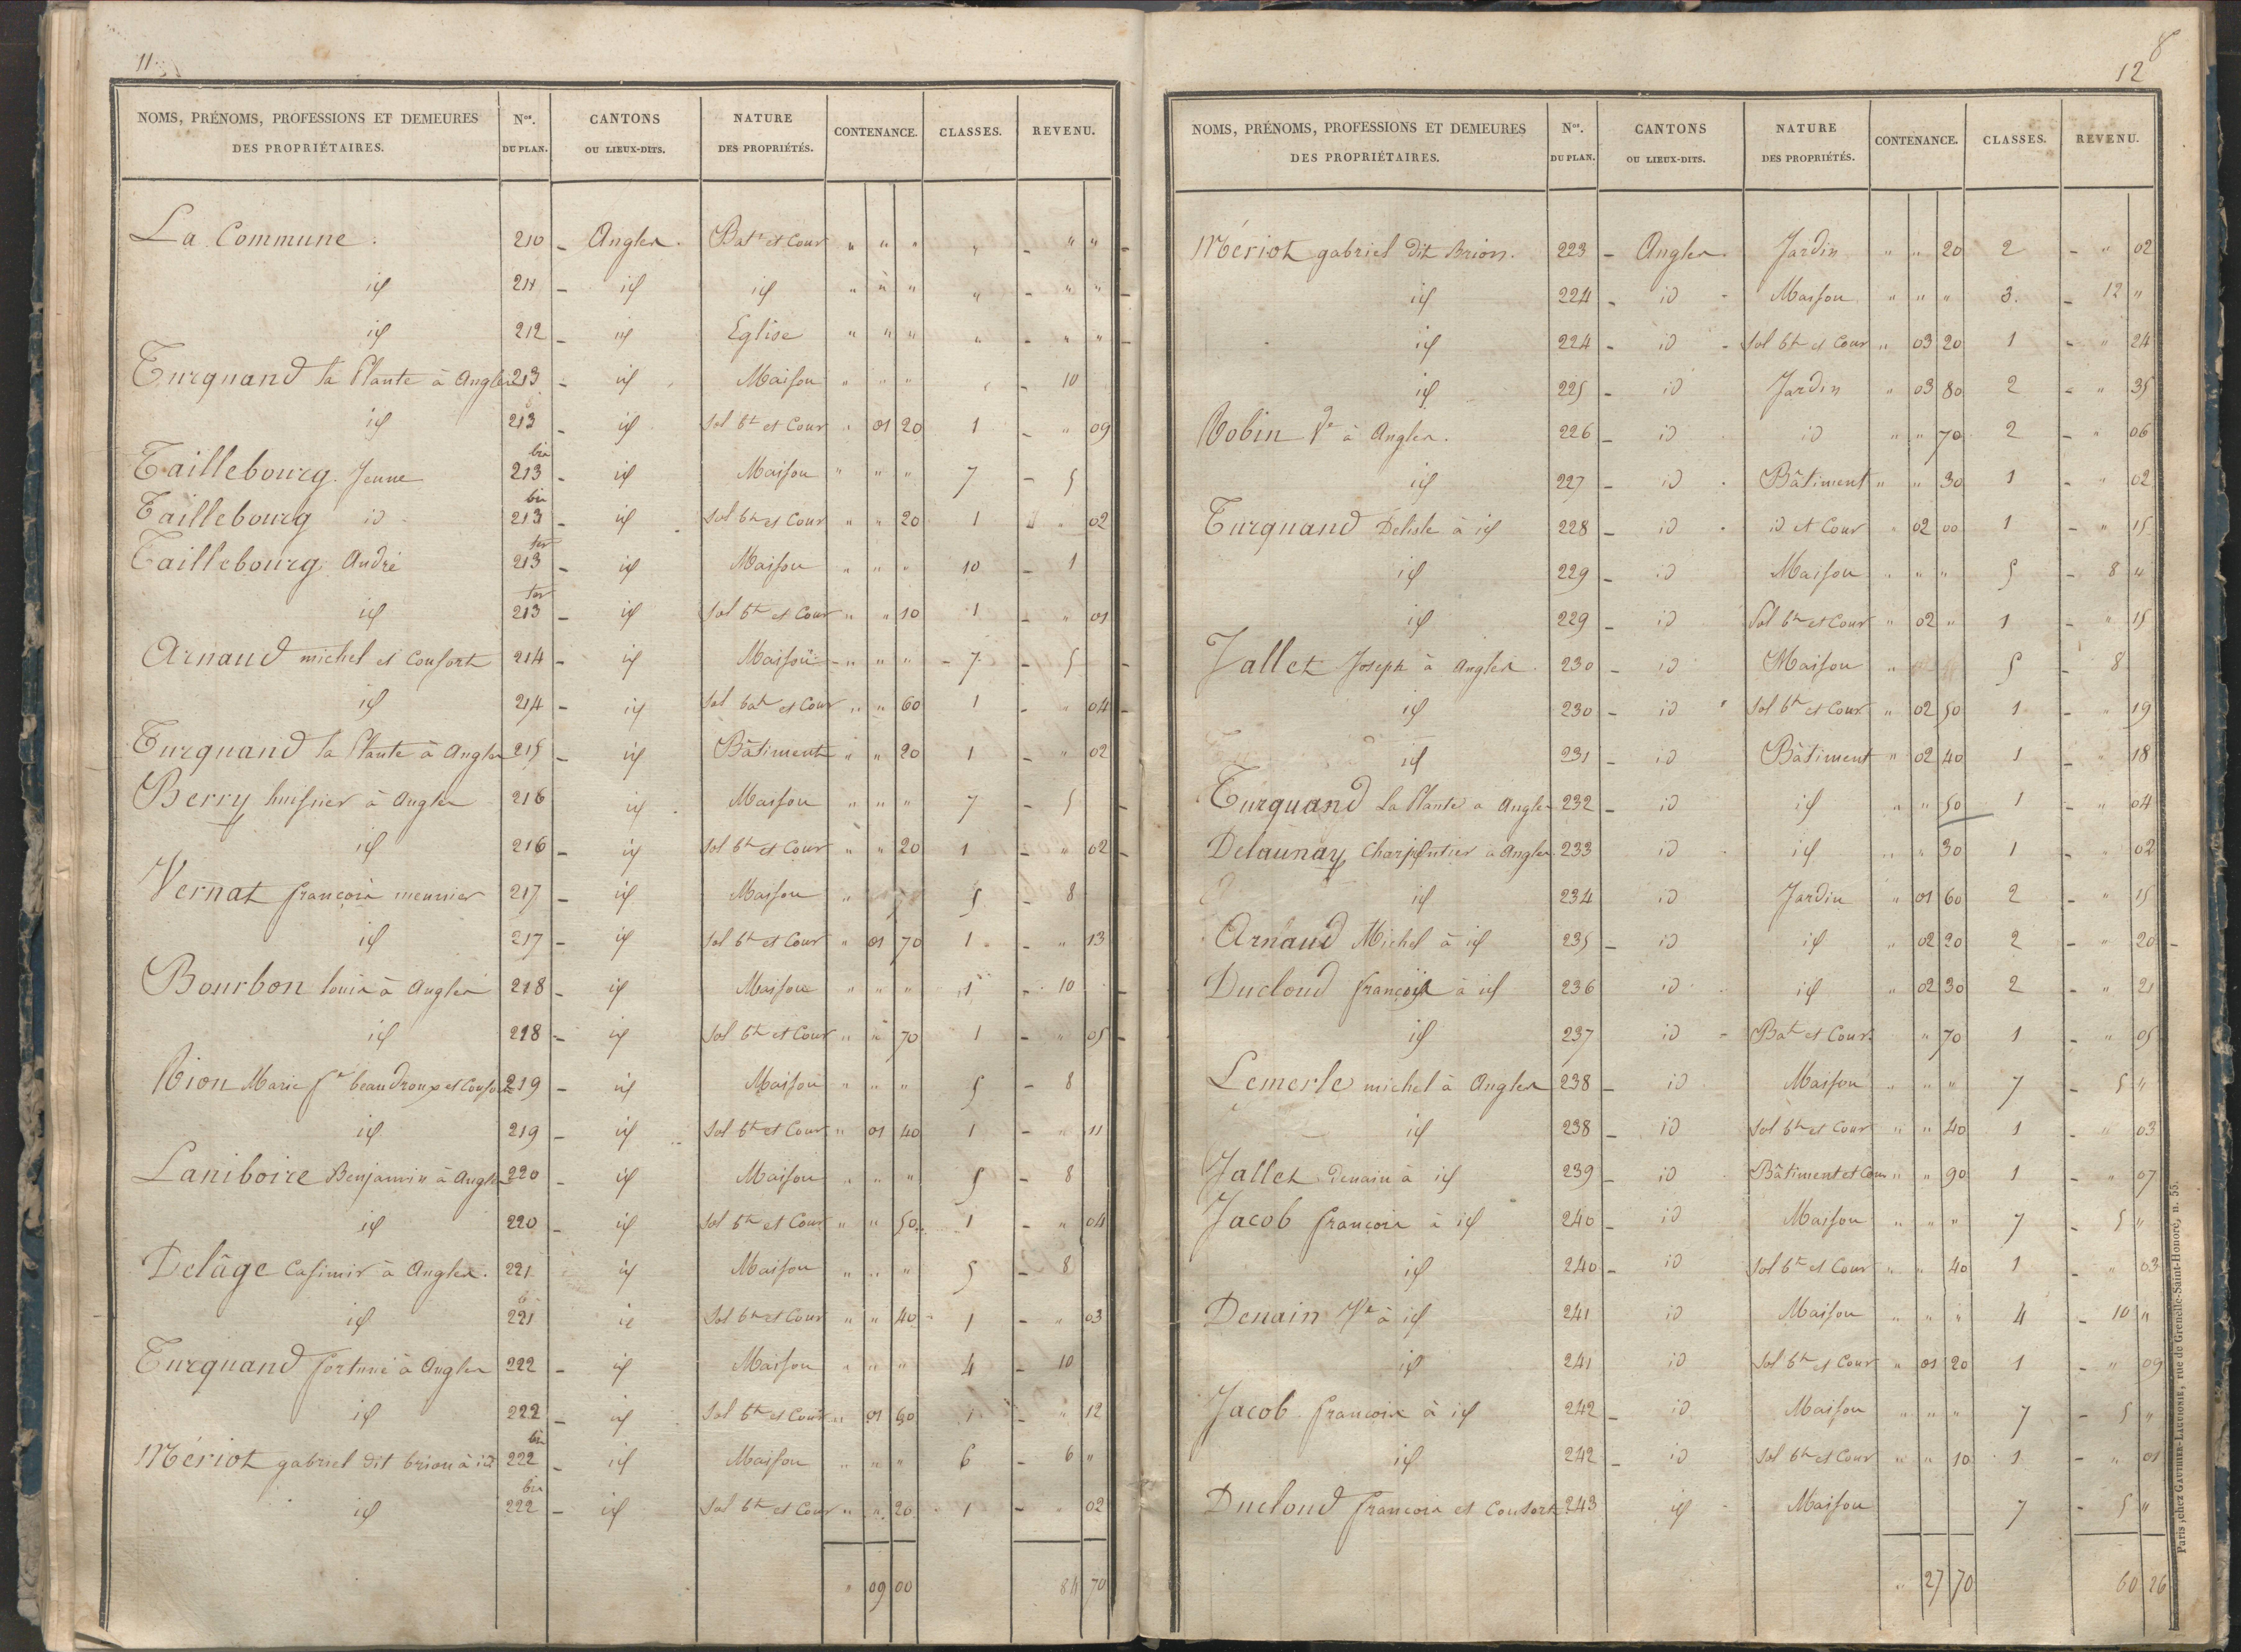 11
NOMS, PRÉNOMS, PROFESSIONS ET DEMEURES DES PROPRIÉTAIRES. Nos. DU PLAN. CANTONS OU LIEUX-DITS. NATURE DES PROPRIÉTÉS. CONTENANCE. CLASSES. REVENU.
La Commune. 210 - Angles. Batt et Cour " " " " - " "
id 211 - id id " " " " - " "
id 212 - id Eglise " " " " - " "
Turquand la Plante à Angles 213 - id Maison " " " - 10
id 213 - id Sol bt et Cour " 01 20 1 - " 09
Taillebourg Jeune 213 bis - id Maison " " " 7 - 5
Taillebourg id 213 bis - id Sol bt et Cour " " 20 1 " 02
Taillebourg André 213 ter - id Maison " " " 10 - 1
id 213 ter - id Sol bt et Cour " " 10 1 - " 01
Arnaud michel et Consort 214 - id Maison " " " 7 - 5
id 214 - id Sol bat et Cour " " 60 1 - " 04
Turquand la Plante à Angles 215 - id Bâtiment " " 20 1 - " 02
Berry huissier à Angles 216 id Maison " " " 7 - 5
id 216 - id Sol bt et Cour " " 20 1 - " 02
Vernat françois meunier 217 - id Maison " 5 - 8
id 217 - id Sol bt et Cour " 01 70 1 - " 13
Bourbon louis à Angles 218 - id Maison " " " - 10
id 218 - id Sol bt et Cour " " 70 1 - " 05
Rion Marie fe beaudroux et Consort 219 - id Maison " " " 5 - 8
id 219 - id Sol bt et Cour " 01 40 1 - " 11
Laniboire Benjamin à Angles 220 - id Maison " " " 5 - 8
id 220 - id Sol bt et Cour " " 50 1 - " 04
Delâge Casimir à Angles. 221 id Maison " " " 5 - 8
id 221 id Sol bt et Cour " " 40 1 - " 03
Turquand fortuné à Angles 222 - id Maison " " " 4 - 10
id 222 - id Sol bt et Cour " 01 60 1 - " 12
Mériot gabriel dit brion à id 222 bis - id Maison " " " 6 - 6 "
id 222 bis - id Sol bt et Cour " " 20 1 - " 02
" 09 00 84 70
8
12
NOMS, PRÉNOMS, PROFESSIONS ET DEMEURES DES PROPRIÉTAIRES. Nos. DU PLAN. CANTONS OU LIEUX-DITS. NATURE DES PROPRIÉTÉS. CONTENANCE. CLASSES. REVENU.
Mériot gabriel dit Brion. 223 - Angles. Jardin " " 20 2 - " 02
id 224 - id Maison " " " 3. - 12 "
id 224 - id Sol bt et Cour " 03 20 1 - " 24
id 225 - id Jardin " 03 80 2 - " 35
Robin Ve à Angles. 226 - id id " " 70 2 - " 06
id 227 - id Bâtiment " " 30 1 - " 02
Turquand Delisle à id 228 - id id et Cour " 02 00 1 - " 15
id 229 - id Maison " " " 5 - 8 "
id 229 - id Sol bt et Cour " 02 " 1 - " 15
Jallet Joseph à Angles. 230 - id Maison " 5 - 8
id 230 - id Sol bt et Cour " 02 50 1 - " 19
id 231 - id Bâtiment " 02 40 1 - " 18
Turquand La Plante à Angles 232 - id id " " 50 1 - " 04
Delaunay Charpentier à Angles. 233 id id " " 30 1 - " 02
id 234 id Jardin " 01 60 2 - " 15
Arnaud Michel à id 235 - id id " 02 20 2 - " 20
Ducloud françois à id 236 id id " 02 30 2 - " 21
id 237 id Bat et Cour. " 70 1 - " 05
Lemerle michel à Angles 238 - id Maison " " " 7 - 5 "
id 238 - id Sol bt et Cour " " 40 1 - " 03
Jallet Denain à id 239 - id Bâtiment et Cour " " 90 1 - " 07
Jacob françois à id 240 - id Maison " " " 7 - 5 "
id 240 - id Sol bt et Cour " " 40 1 - " 03
Denain Ve à id 241 id Maison " " " 4 - 10 "
id 241 id Sol bt et Cour " 01 20 1 - " 09
Jacob françois à id 242 - id Maison " " " 7 - 5 "
id 242 - id Sol bt et Cour " " 10 1 - " 01
Ducloud françois et Consort 243 id Maison 7 - 5 "
" 27 70 60 26
Paris, chez GAUTHIER-LAUCHONIE, rue de Grenelle-Saint-Honoré, n. 55.